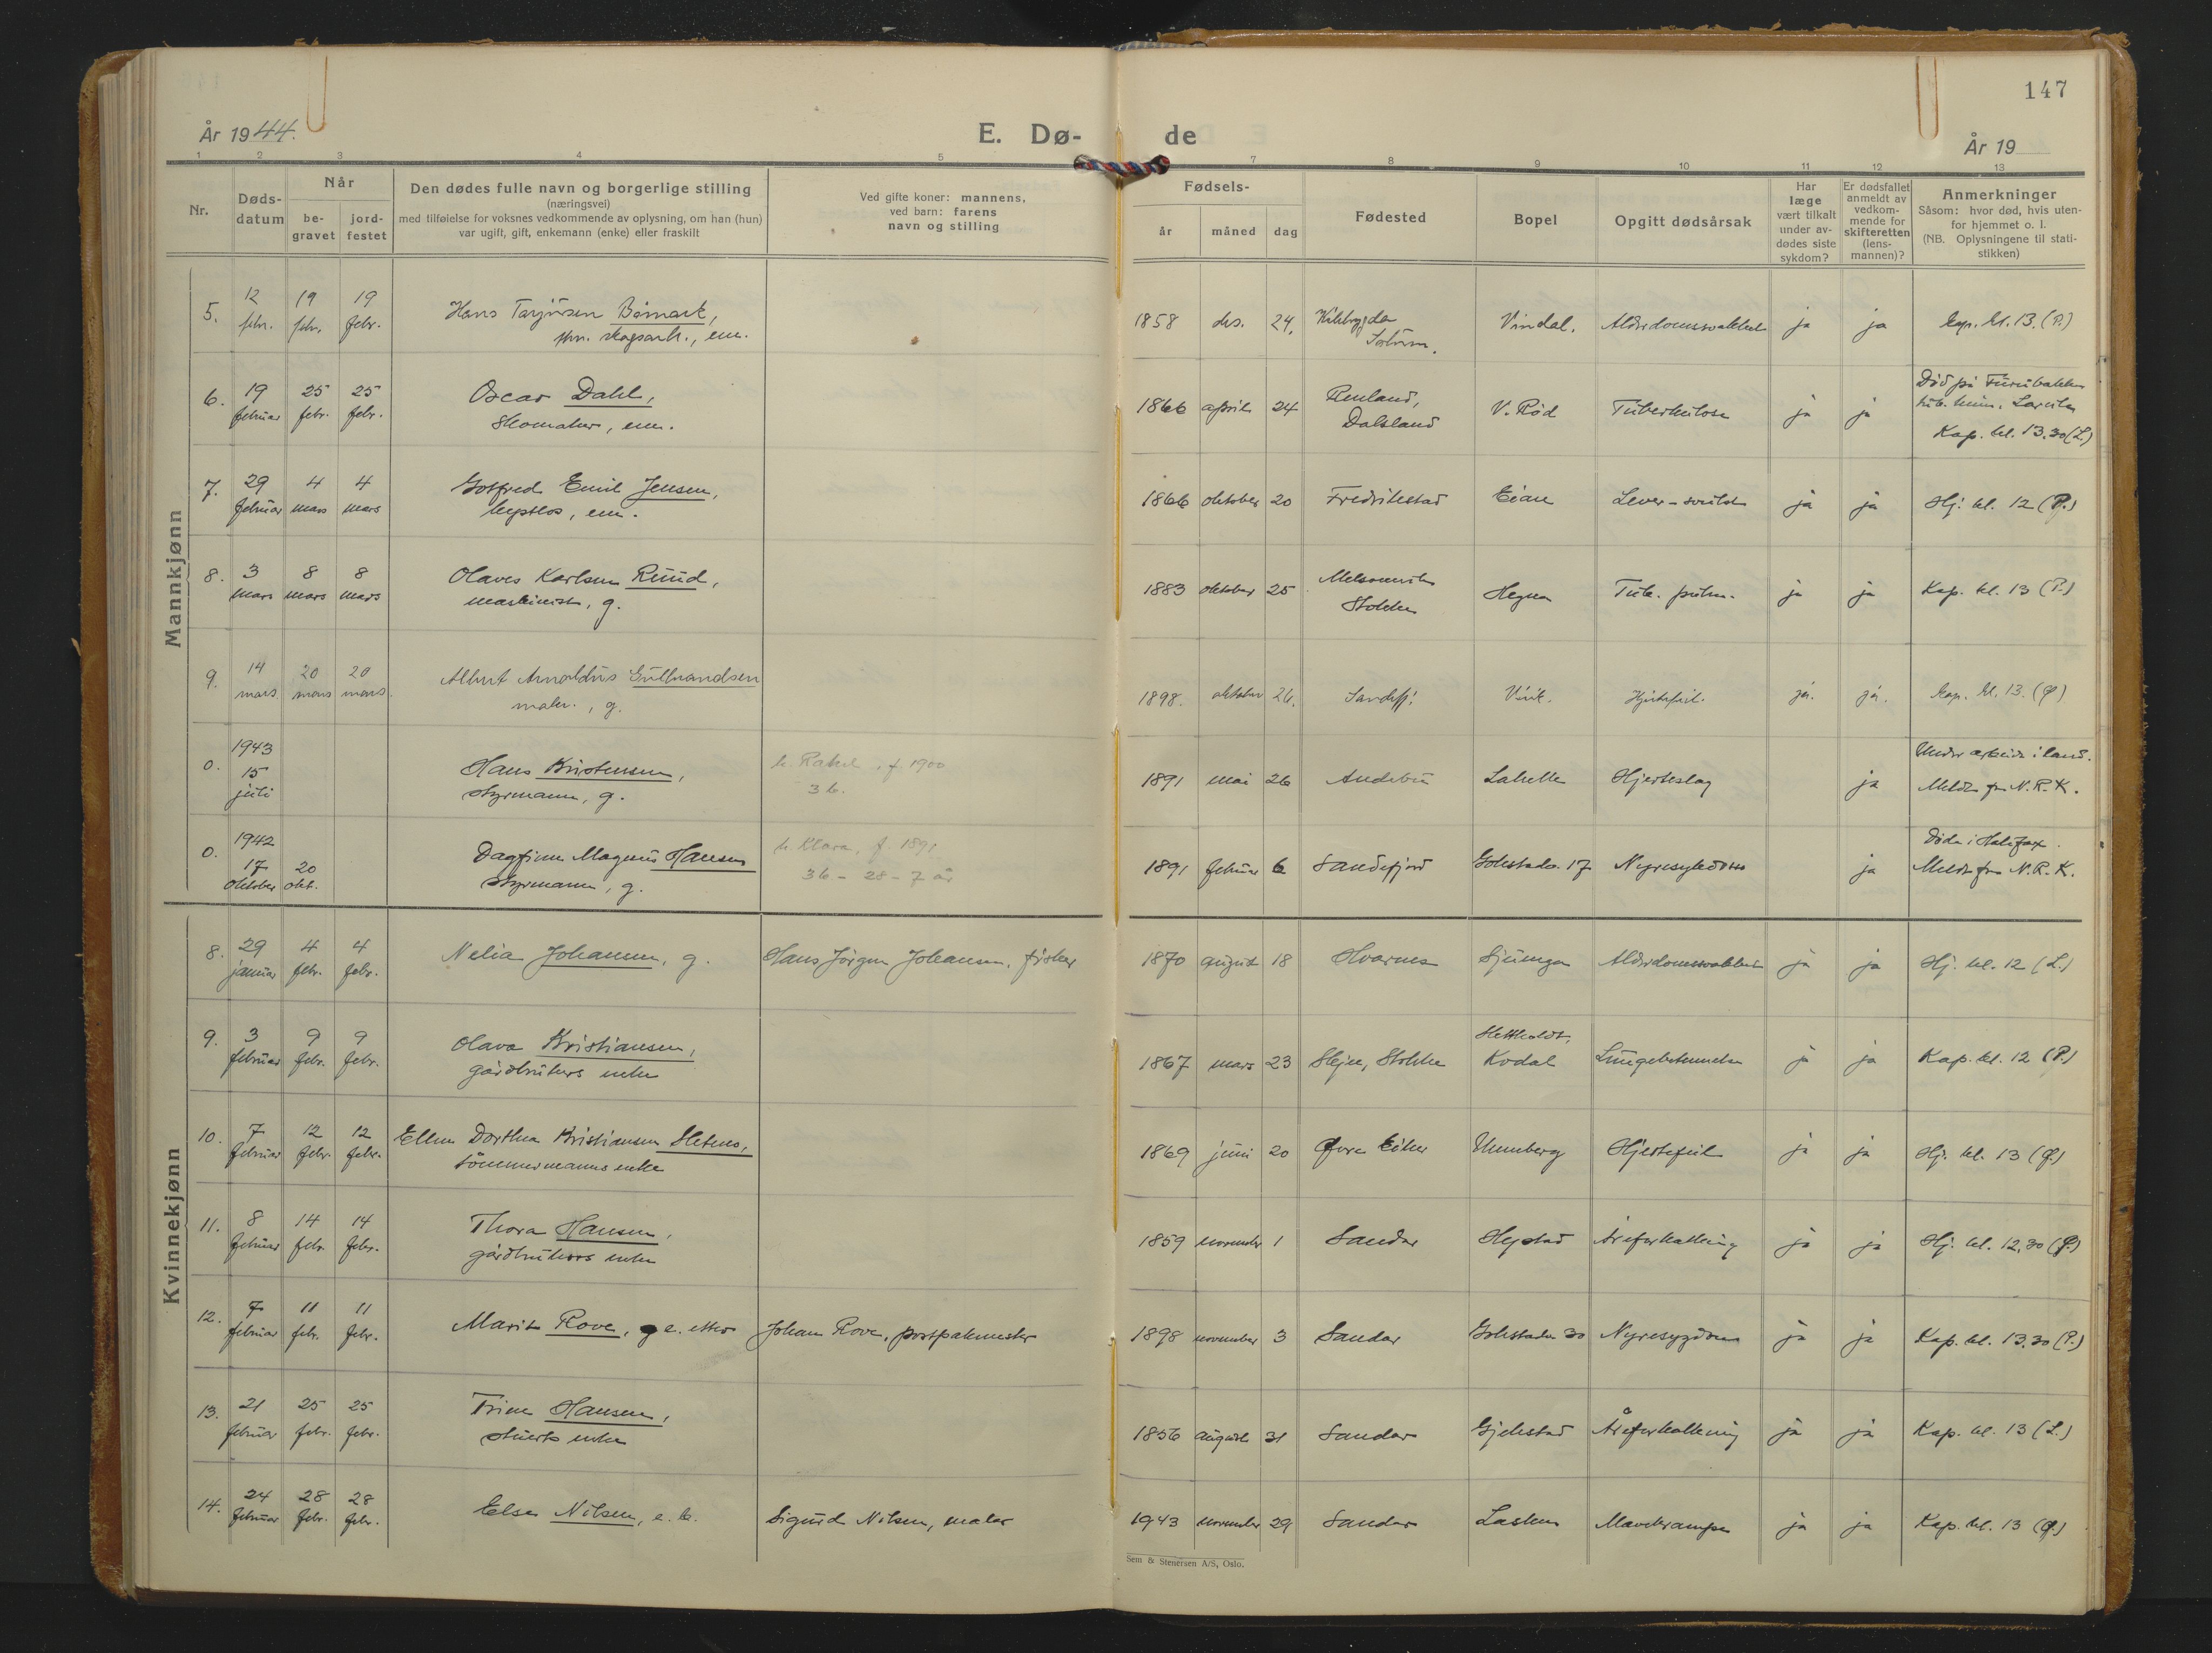 147
År 1944.
E. Dø-
de
År 19
1 2 3 4 5 7 8 9 10 11 12 13
Nr.
Døds-
datum
Når
be-
gravet
jord-
festet
Den dødes fulle navn og borgerlige stilling
(næringsvei)
med tilføielse for voksnes vedkommende av oplysning, om han (hun)
var ugift, gift, enkemann (enke) eller fraskilt
Ved gifte koner: mannens,
ved barn: farens
navn og stilling
Fødsels-
år måned dag
Fødested
Bopel
Opgitt dødsårsak
Har
læge
vært tilkalt
under av-
dødes siste
sykdom?
Er dødsfallet
anmeldt av
vedkom-
mende for
skifteretten
(lens-
mannen)?
Anmerkninger
Såsom: hvor død, hvis uten-
for hjemmet o. l.
(NB. Oplysningene til stati-
stikken)
Mannkjønn
5. 12 febr. 19 febr. 19 febr.
Hans Torjusen Bømark,
skogsarb., em.
1858 des. 24.
Vindal. Alderdomssvakhet ja ja Kap. kl. 13. (P.)
6. 19 februar 25 febr. 25 febr.
Oscar Dahl,
Skomaker, em.
1866 april 24
Renland,
Dalsland
V. Rød Tuberkulose ja ja
Død på Furubakken
tub. heim, Larvik
Kap. kl. 13.30 (L.)
7. 29 februar 4 mars 4 mars
Gotfred Emil Jensen,
løpslos, em.
1866 oktober 20 Fredrikstad Eian Lever-svulst ja ja Hj. kl. 12 (P.)
8. 3 mars 8 mars 8 mars
Olaves Karlsen Ruud,
maskinist, g.
1883 oktober 25
Melsomvik
Stokke
Hegna Tub. pulm. ja ja Kap. kl. 13 (P.)
9. 14 mars 20 mars 20 mars.
Albert Arnoldus Gulbrandsen
maler., g.
1898. oktober 26. Sandefj. Virik. Hjertefeil. ja. ja. Kap. kl. 13. (Ø)
0. 1943
15
juli
Hans Kristensen,
styrmann, g.
h. Rakel, f. 1900
3 b.
1891 mai 26 Andebu Labelle Hjerteslag ja
Under arbeide i land.
Meldt fra N.R.K.
0. 1942
17
oktober
20
okt.
Dagfinn Magnus Hansen
styrmann, g.
h. Klara, f. 1891
3 b - 28 - 7 år
1891 februar 6 Sandefjord Gokstadv. 17 Nyresykdom ja
Døde i Halifax.
Meldt fra N.R.K.
Kvinnekjønn
8. 29 januar 4 febr. 4 febr.
Nelia Johansen, g. Hans Jørgen Johansen, fisker
1870 august 18 Hvarnes Gjuinga Alderdomssvakhet ja ja Hj. kl. 12 (L.)
9. 3 februar 9 febr. 9 febr.
Olava Kristiansen,
gårdbrukers enke
1867 mars 23 Skjee, Stokke
Hettholdt,
Kodal
Lungebetennelse ja ja Kap. kl. 12 (P.)
10. 7 februar 12 febr. 12 febr.
Ellen Dorthea Kristiansen
tømmermanns enke
1869 juni 20 Øvre Eiker Unneberg Hjertefeil ja ja Hj. kl. 13 (Ø.)
11. 8 februar 14 febr. 14 febr.
Thora Hansen,
gårdbrukers enke
1859 november 1 Sandar Hystad Åreforkalkning ja ja Hj. kl. 12,30 (Ø.)
12. 7 februar 11 febr. 11 febr.
Marit Rove, g e. etter Johan Rove, postpakmester
1898 november 3 Sandar Gokstadv 30 Nyresygdom ja ja Kap. kl. 13.30 (P.)
13. 21 februar 25 febr. 25 febr.
Trine Hansen,
stuerts enke
1856 august 31 Sandar Gjekstad Åreforkalkning ja ja Kap. kl. 13 (L.)
14. 24 februar 28 febr. 28 febr.
Else Nilsen, e.b. Sigurd Nilsen, maler
1943 november 29 Sandar Lasken Mavekrampe ja ja Kap. kl. 13 (Ø.)
Sem & Stenersen A/S, Oslo.